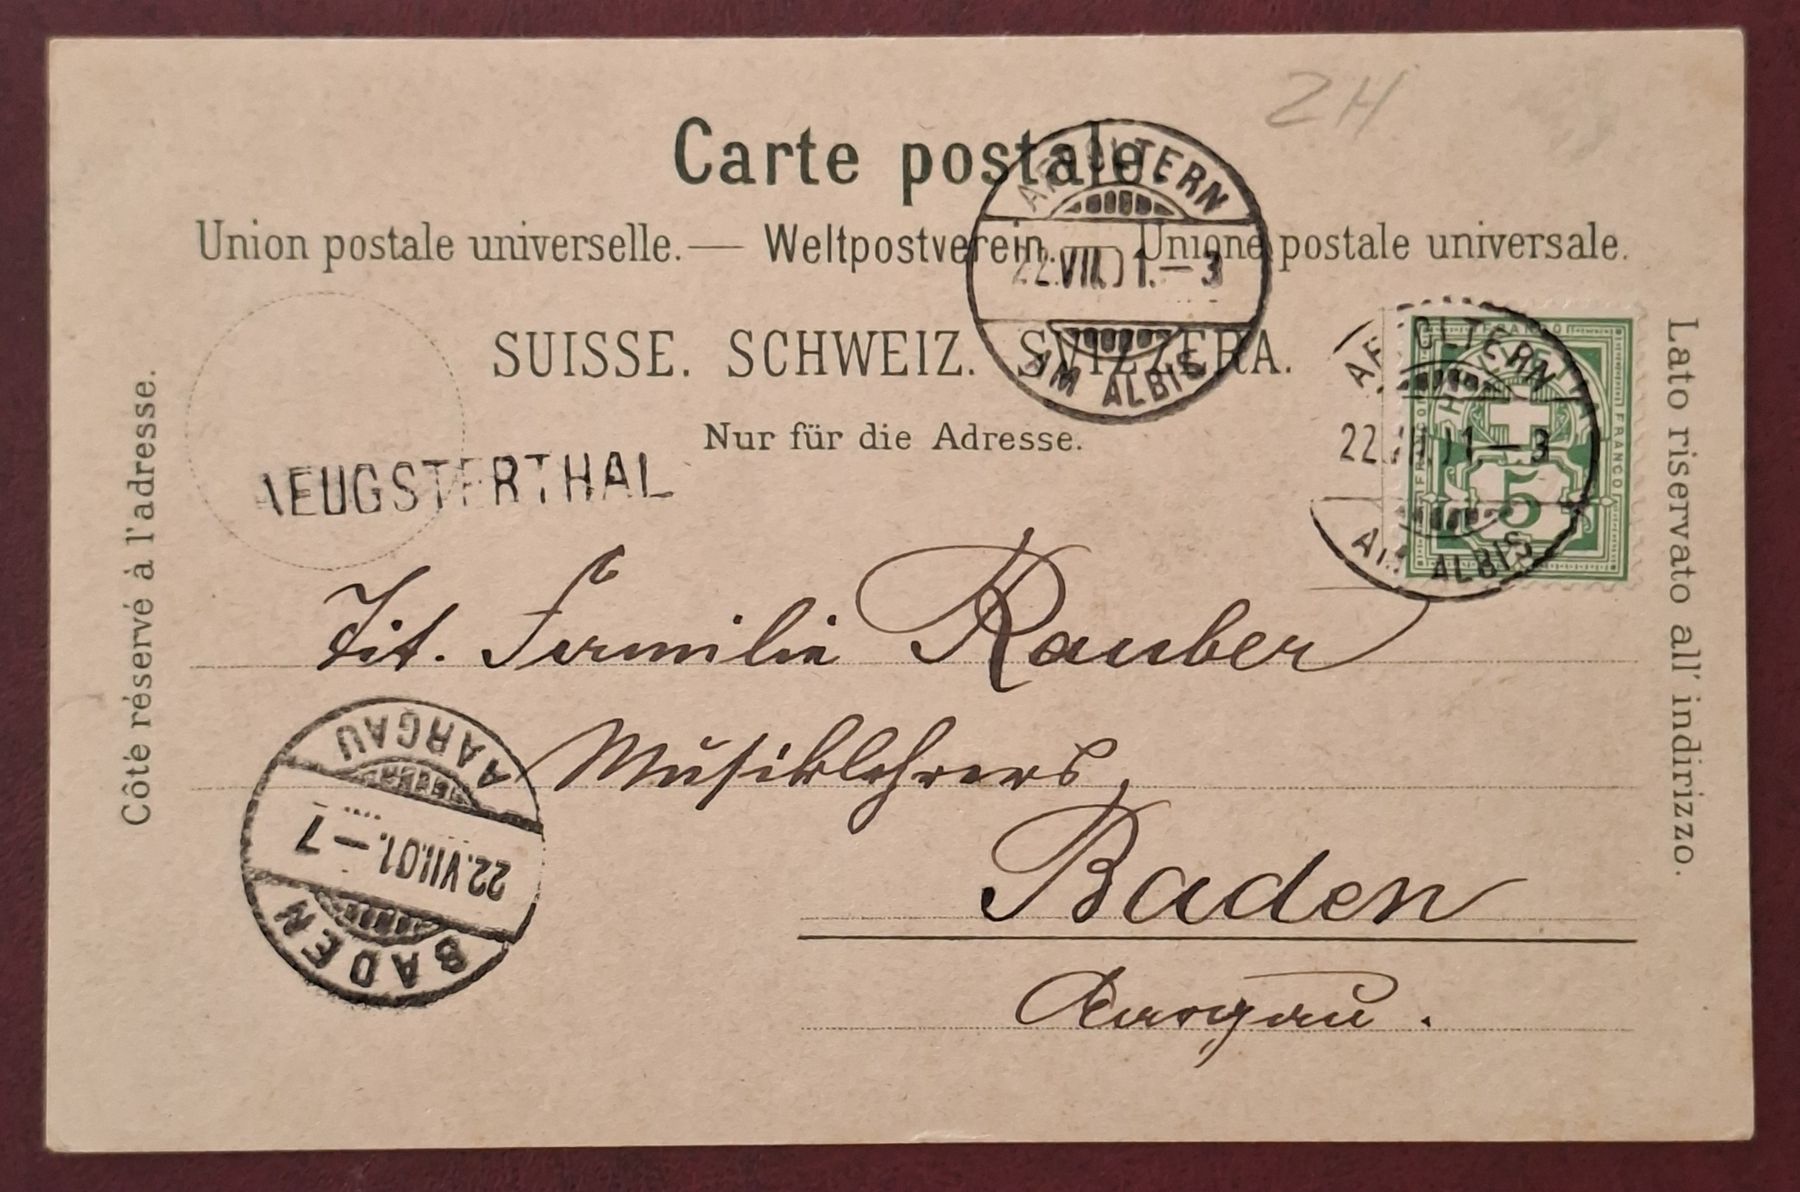 ZH
Carte postale.
Union postale universelle. — Weltpostverein. — Unione postale universale.
SUISSE. SCHWEIZ. SVIZZERA.
Nur für die Adresse.
AFFOLTERN
22.VII.01.—3
AM ALBIS
AFFOLTERN
22.VII.01.—3
AM ALBIS
FRANCO
FRANCO
5
AEUGSTERTHAL
Côté réservé à l'adresse.
Lato riservato all' indirizzo.
Tit. Familie Rauber
Musiklehrers,
Baden
Aargau.
BADEN
22.VII.01.—7
AARGAU